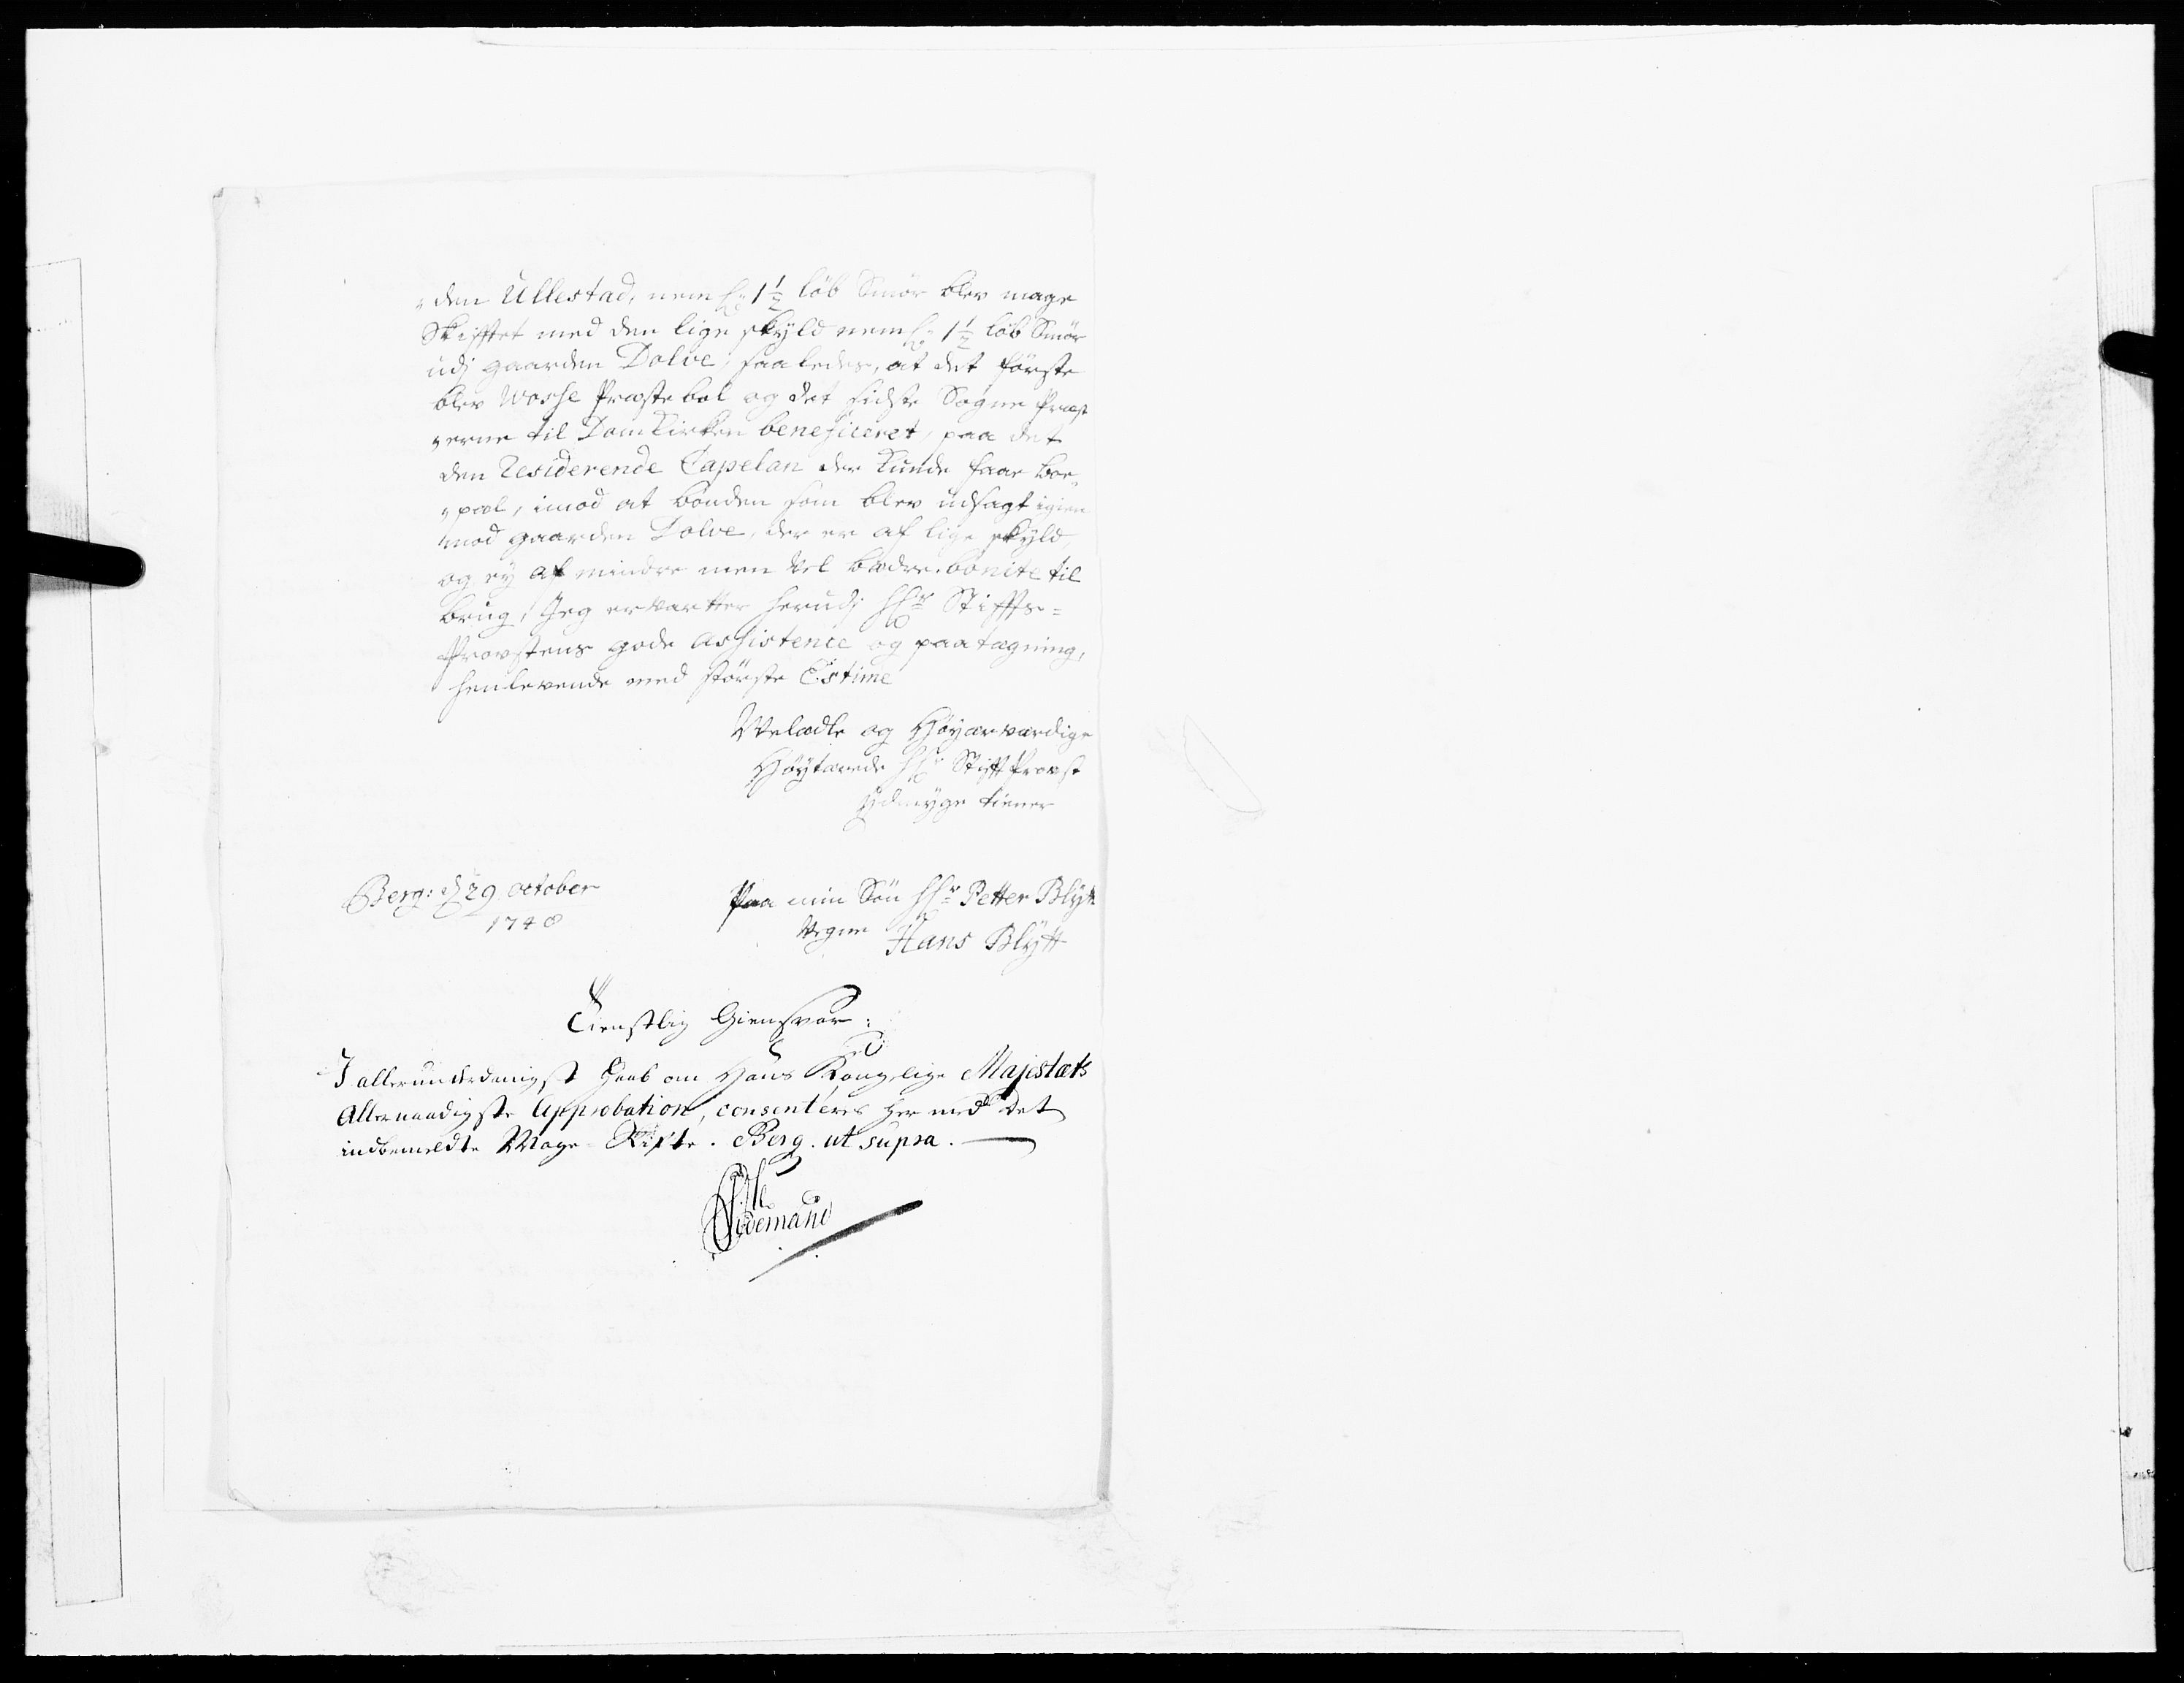 „den Ullestad, neml: 1 1/2 löb Smör blev mage
Skifftet med den lige skyld neml: 1 1/2 löb Smör
udj gaarden Dolve, saaledes, at det förste
blev Wosse Præstebol og det sidste Sogne Præst
„erne til Dom Kirken beneficeret, paa det
den Residerende Capelan der kunde faae Boe„
„pæl, imod at bonden som blev udsagt igien
mod gaarden Dolve, der er af lige skyld,
og ey af mindre men vel bædre bonite til
brug, Jeg ervartter herudj Hr Stiffts=
Provstens gode assistence og paategning,
henlevende med störste Estime
Velædle og Höyærværdige
Höytærede Hr Stifft Provst
Ydmyge tiener
Berg: d 29 october
1748
Paa min Sön Hr Petter Blÿtt
Vegne Hans Blÿtt
Tienstlig Giensvar:
I allerunderdanigst Haab om Hans Kongelige Majestæts
Allernaadigste Approbation, consenteres her med det
indbemeldte Mage-Skifte. Berg. ut supra.
Tidemand